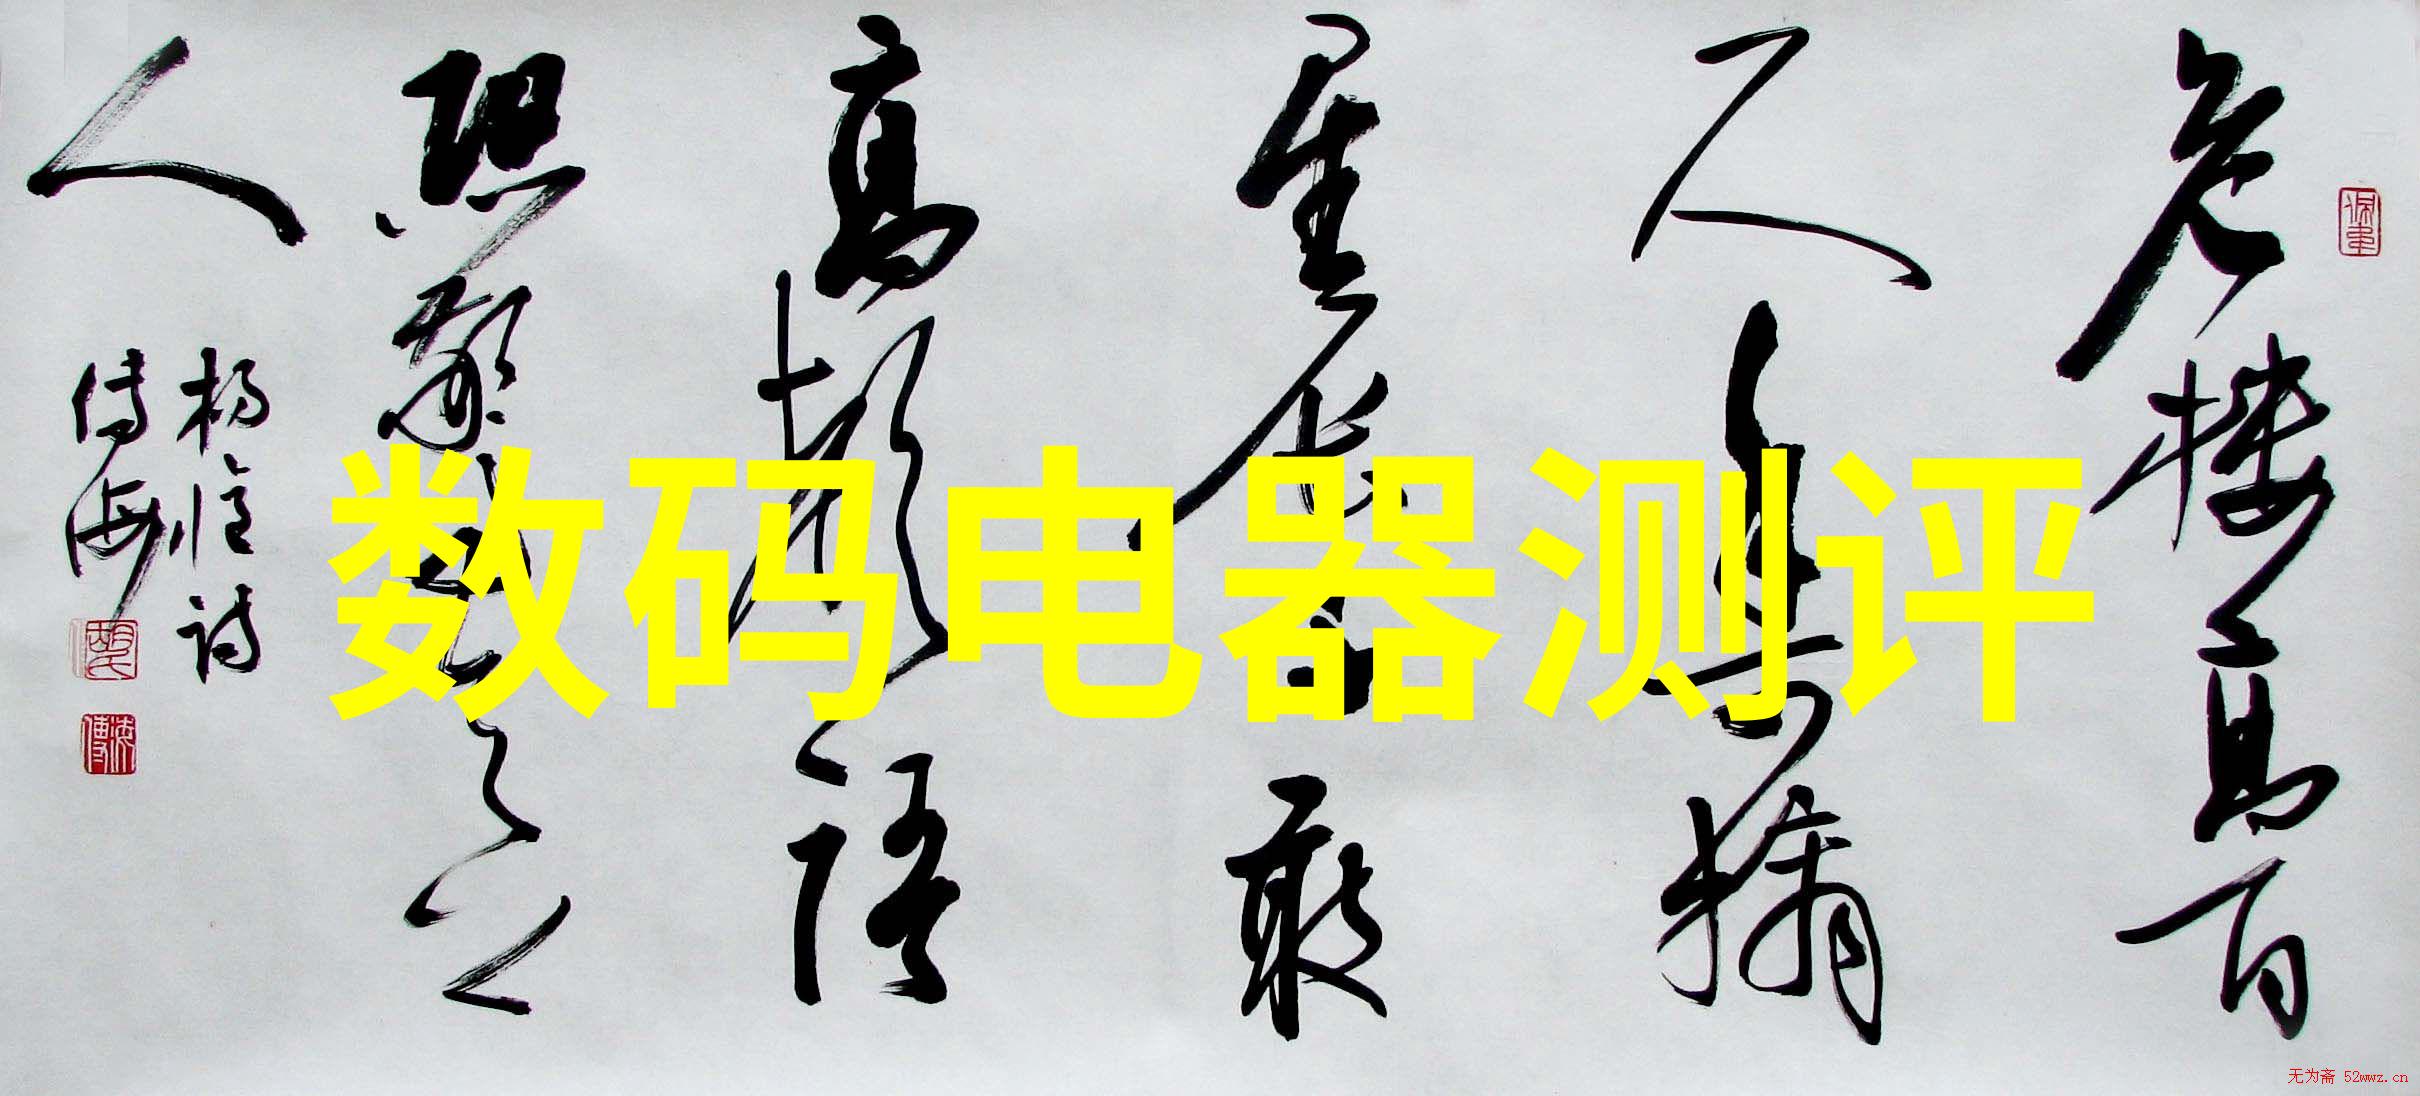 危楼高百
尺手可摘
星辰不敢
高声语
恐惊天上
人
杨亿诗
数码电器测评
无为斋 52wwz.cn